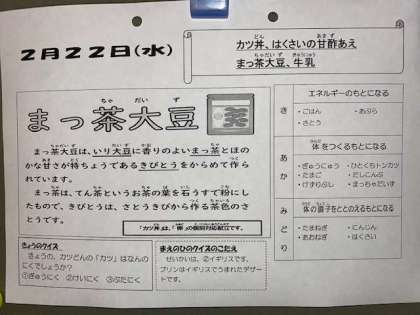 2月22日(水)
カツ丼、はくさいの甘酢あえ
まっ茶大豆、牛乳
まっ茶大豆
茶
まっ茶大豆は、いり大豆に香りのよいまっ茶とほの
かな甘さが持ちょうであるきびとうをからめて作ら
れています。
まっ茶は、てん茶というお茶の葉を石うすで粉にし
たもので、きびとうは、さとうきびから作る茶色のさ
とうです。
「カツ丼」は、「卵」の個別対応献立です。
きょうのクイズ
きょうの、カツどんの「カツ」はなんの
にくでしょうか?
①ぎゅうにく ②けいにく ③ぶたにく
まえのひのクイズのこたえ
せいかいは、②イギリスです。
プリンはイギリスでうまれたデザー
トです。
エネルギーのもとになる
き
・ごはん ・あぶら
・さとう
体をつくるもとになる
あか
・ぎゅうにゅう ・ひとくちトンカツ
・たまご ・だしこんぶ
・けずりぶし ・まっちゃだいず
体の調子をととのえるもとになる
みどり
・たまねぎ ・にんじん
・あおねぎ ・はくさい